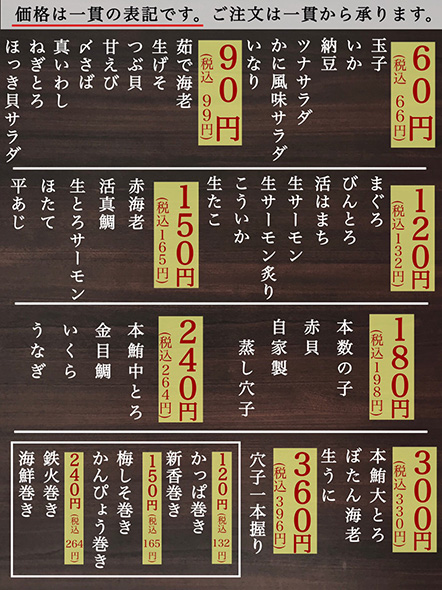 価格は一貫の表記です。ご注文は一貫から承ります。
60円
(税込 66円)
玉子
いか
納豆
ツナサラダ
かに風味サラダ
いなり
90円
(税込 99円)
茹で海老
生げそ
つぶ貝
甘えび
〆さば
真いわし
ねぎとろ
ほっき貝サラダ
120円
(税込132円)
まぐろ
びんとろ
活はまち
生サーモン
生サーモン炙り
こういか
生たこ
150円
(税込165円)
赤海老
活真鯛
生とろサーモン
ほたて
平あじ
180円
(税込198円)
本数の子
赤貝
自家製
蒸し穴子
240円
(税込264円)
本鮪中とろ
金目鯛
いくら
うなぎ
300円
(税込330円)
本鮪大とろ
ぼたん海老
生うに
360円
(税込396円)
穴子一本握り
120円(税込 132円)
かっぱ巻き
新香巻き
150円(税込 165円)
梅しそ巻き
かんぴょう巻き
240円(税込 264円)
鉄火巻き
海鮮巻き